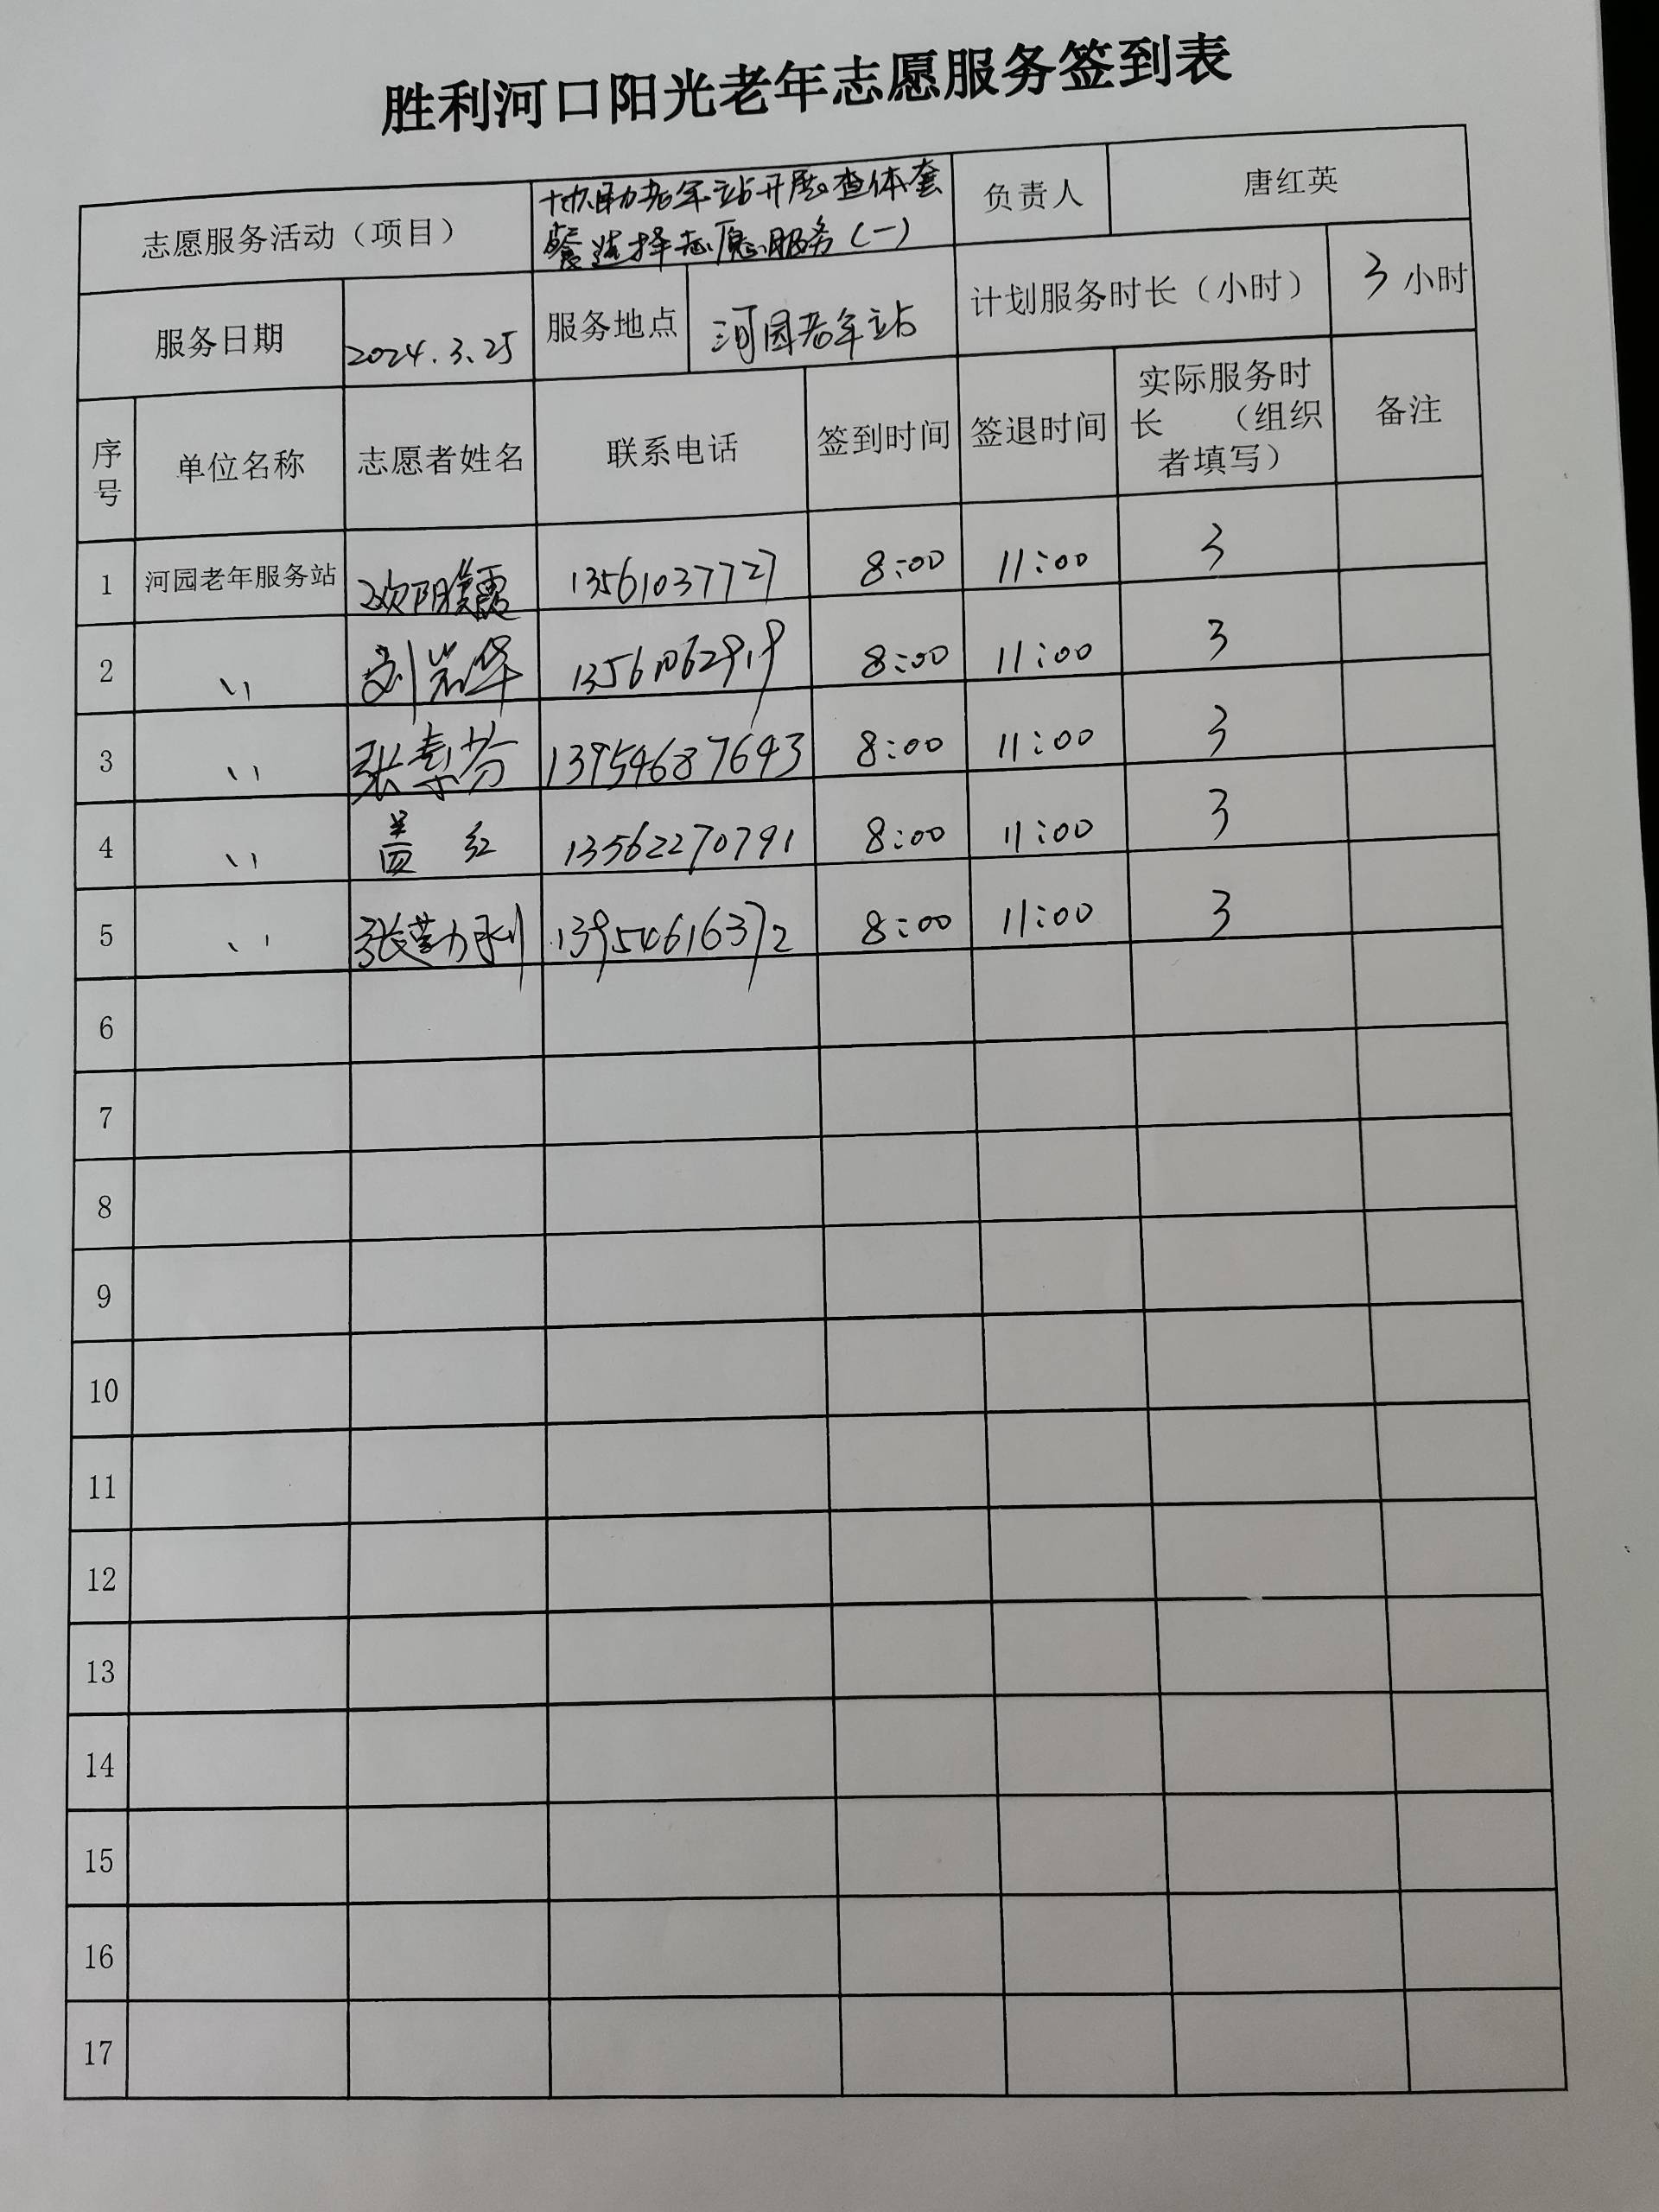 胜利河口阳光老年志愿服务签到表
志愿服务活动（项目） 协助老年站开展查体套 负责人 唐红英
餐选择志愿服务（一）
服务日期 2024.3.25 服务地点 河园老年站 计划服务时长（小时） 3 小时
序号 单位名称 志愿者姓名 联系电话 签到时间 签退时间 实际服务时长 （组织者填写） 备注
1 河园老年服务站 欧阳美霞 13561037727 8:00 11:00 3
2 〃 刘岩华 13561062919 8:00 11:00 3
3 〃 张素芬 13954687643 8:00 11:00 3
4 〃 盖红 13562270791 8:00 11:00 3
5 〃 张 13954616372 8:00 11:00 3
6
7
8
9
10
11
12
13
14
15
16
17